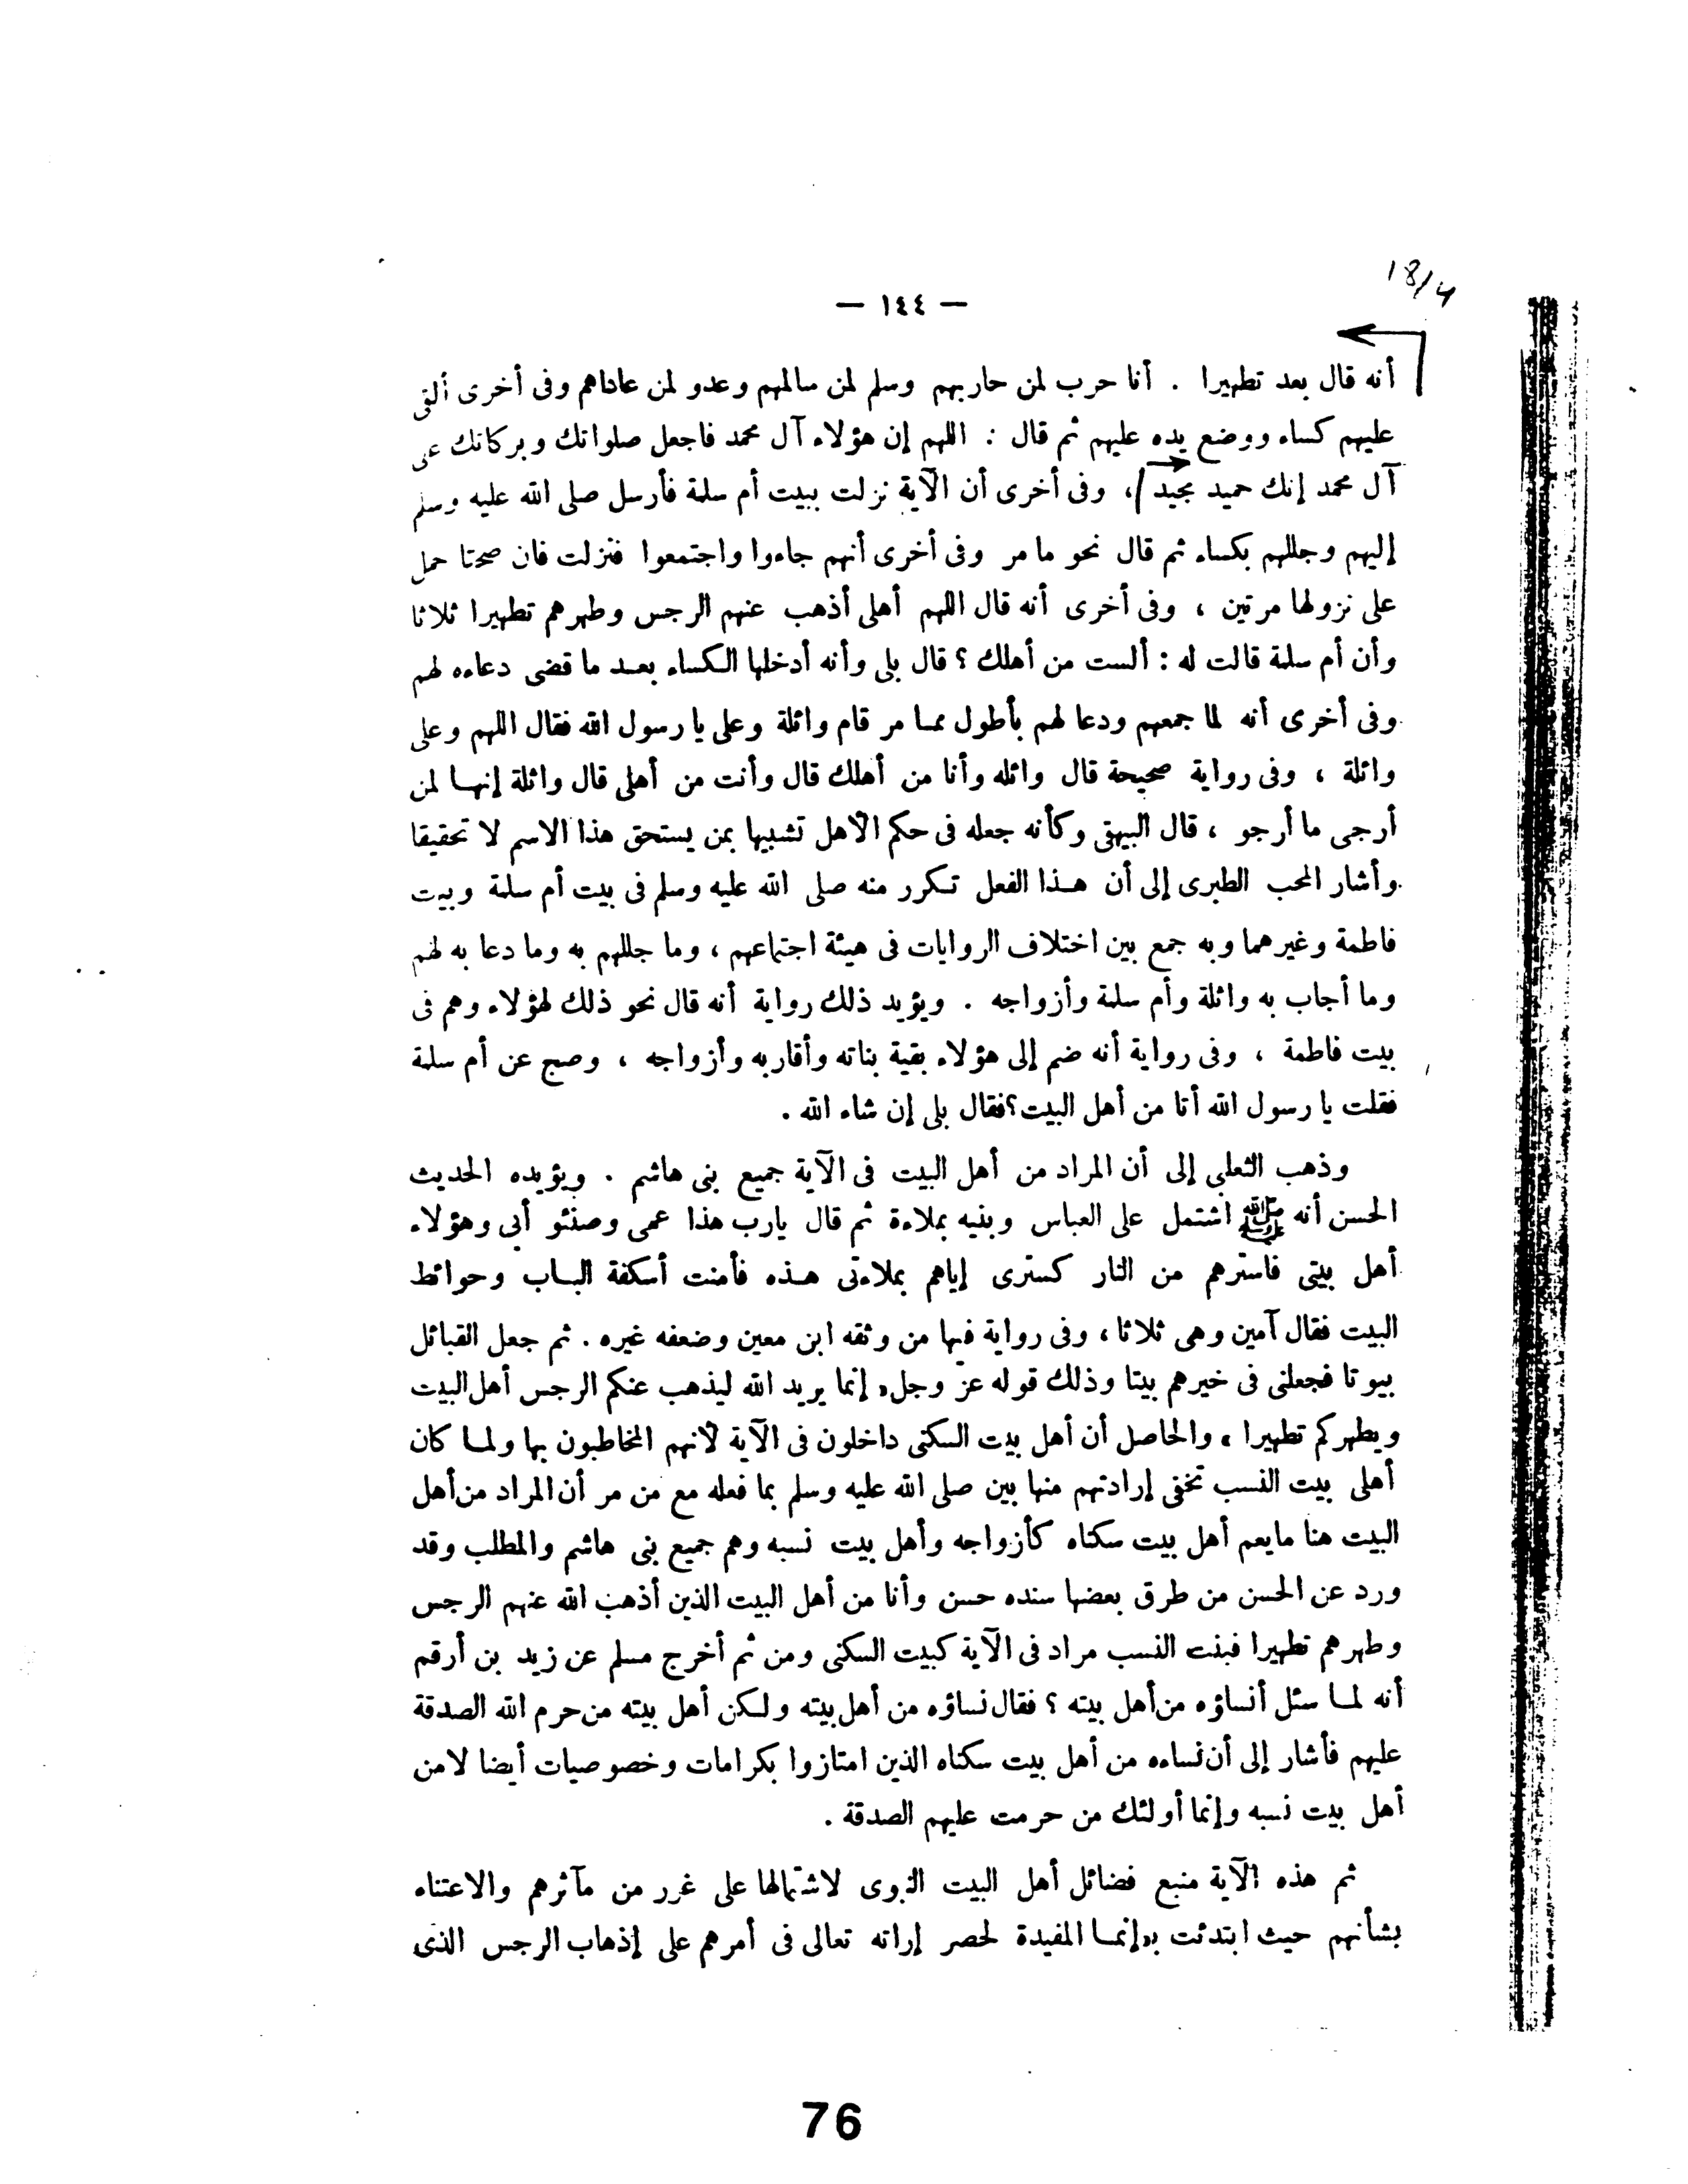 18/4
— ١٤٤ —
أنه قال بعد تطهيرا . أنا حرب لمن حاربهم وسلم لمن سالمهم وعدو لمن عاداهم وفى أخرى ألقى
عليهم كساء ووضع يده عليهم ثم قال : اللهم إن هؤلاء آل محمد فاجعل صلواتك وبركاتك على
آل محمد إنك حميد مجيد ، وفى أخرى أن الآية نزلت ببيت أم سلمة فأرسل صلى الله عليه وسلم
إليهم وجللهم بكساء ثم قال نحو ما مر وفى أخرى أنهم جاءوا واجتمعوا فنزلت فان صحتا حمل
على نزولها مرتين ، وفى أخرى أنه قال اللهم أهلى أذهب عنهم الرجس وطهرهم تطهيرا ثلاثا
وأن أم سلمة قالت له : ألست من أهلك ؟ قال بلى وأنه أدخلها الكساء بعد ما قضى دعاءه لهم
وفى أخرى أنه لما جمعهم ودعا لهم بأطول مما مر قام واثلة وعلى يا رسول الله فقال اللهم وعلى
واثلة ، وفى رواية صحيحة قال واثله وأنا من أهلك قال وأنت من أهلى قال واثلة إنها لمن
أرجى ما أرجو ، قال البيهقى وكأنه جعله فى حكم الأهل تشبيها بمن يستحق هذا الاسم لا تحقيقا
وأشار المحب الطبرى إلى أن هذا الفعل تكرر منه صلى الله عليه وسلم فى بيت أم سلمة وبيت
فاطمة وغيرهما وبه جمع بين اختلاف الروايات فى هيئة اجتماعهم ، وما جللهم به وما دعا به لهم
وما أجاب به واثلة وأم سلمة وأزواجه . ويؤيد ذلك رواية أنه قال نحو ذلك لهؤلاء وهم فى
بيت فاطمة ، وفى رواية أنه ضم إلى هؤلاء بقية بناته وأقاربه وأزواجه ، وصح عن أم سلمة
فقلت يا رسول الله أنا من أهل البيت؟فقال بلى إن شاء الله .
وذهب الثعلبى إلى أن المراد من أهل البيت فى الآية جميع بنى هاشم . ويؤيده الحديث
الحسن أنه ﷺ اشتمل على العباس وبنيه بملاءة ثم قال يارب هذا عمى وصنو أبى وهؤلاء
أهل بيتى فاسترهم من النار كسترى إياهم بملاءتى هذه فأمنت أسكفة الباب وحوائط
البيت فقال آمين وهى ثلاثا ، وفى رواية فيها من وثقه ابن معين وضعفه غيره . ثم جعل القبائل
بيوتا فجعلنى فى خيرهم بيتا وذلك قوله عز وجل « إنما يريد الله ليذهب عنكم الرجس أهل البيت
ويطهركم تطهيرا » والحاصل أن أهل بيت السكنى داخلون فى الآية لأنهم المخاطبون بها ولما كان
أهلى بيت النسب تخفى إرادتهم منها بين صلى الله عليه وسلم بما فعله مع من مر أن المراد من أهل
البيت هنا مايعم أهل بيت سكناه كأزواجه وأهل بيت نسبه وهم جميع بنى هاشم والمطلب وقد
ورد عن الحسن من طرق بعضها سنده حسن وأنا من أهل البيت الذين أذهب الله عنهم الرجس
وطهرهم تطهيرا فبيت النسب مراد فى الآية كبيت السكنى ومن ثم أخرج مسلم عن زيد بن أرقم
أنه لما سئل أنساؤه من أهل بيته ؟ فقال نساؤه من أهل بيته ولكن أهل بيته من حرم الله الصدقة
عليهم فأشار إلى أن نساءه من أهل بيت سكناه الذين امتازوا بكرامات وخصوصيات أيضا لامن
أهل بيت نسبه وإنما أولئك من حرمت عليهم الصدقة .
ثم هذه الآية منبع فضائل أهل البيت النبوى لاشتمالها على غرر من مآثرهم والاعتناء
بشأنهم حيث ابتدئت بـ«إنما المفيدة لحصر إراته تعالى فى أمرهم على إذهاب الرجس الذى
76